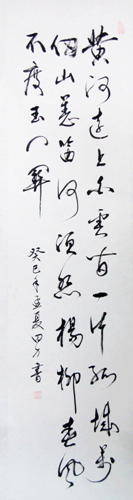 黄河遠上白雲間一片孤城萬
仞山羌笛何須怨楊柳春風
不度玉門關
癸巳年孟夏田方書